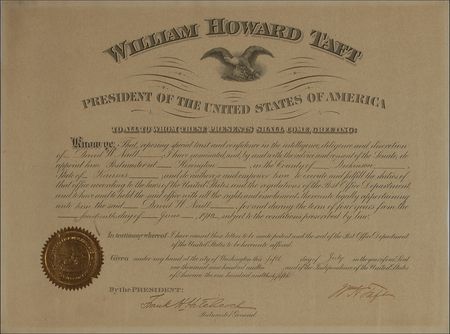 WILLIAM HOWARD TAFT
PRESIDENT OF THE UNITED STATES OF AMERICA
TO ALL TO WHOM THESE PRESENTS SHALL COME, GREETING:
Know ye, That, reposing special trust and confidence in the intelligence, diligence and discretion
of David W. I have nominated, and, by and with the advice and consent of the Senate, do
appoint him Postmaster at in the County of
State of and do authorize and empower him to execute and fulfill the duties of
that office according to the laws of the United States and the regulations of the Post Office Department
and to have and to hold the said office with all the rights and emoluments thereunto legally appertaining
unto him the said David W. for and during the term of four years from the
day of June, 1912, subject to the conditions prescribed by law.
In testimony whereof I have caused these letters to be made patent and the seal of the Post Office Department
of the United States to be hereunto affixed.
Given under my hand at the city of Washington this fifth day of July in the year of our Lord
one thousand nine hundred and and of the Independence of the United States
of America the one hundred and
By the PRESIDENT:
Wm H Taft
Frank H Hitchcock
Postmaster General.